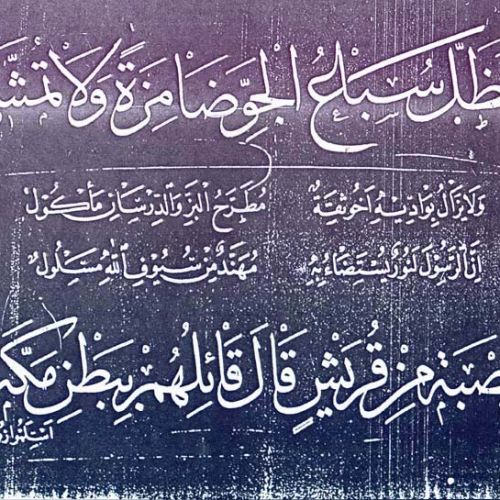 ظَلُّ سِبَاعُ الْجَوِّ ضَامِزَةً وَلَا تَمَشّ
وَلَا يَزَالُ بِوَادِيهِ أَخُو ثِقَةٍ مُطَرَّحُ الْبَزِّ وَالدِّرْسَانِ مَأْكُولُ
إِنَّ الرَّسُولَ لَنُورٌ يُسْتَضَاءُ بِهِ مُهَنَّدٌ مِنْ سُيُوفِ اللهِ مَسْلُولُ
صْبَةٍ مِنْ قُرَيْشٍ قَالَ قَائِلُهُمْ بِبَطْنِ مَكَّ